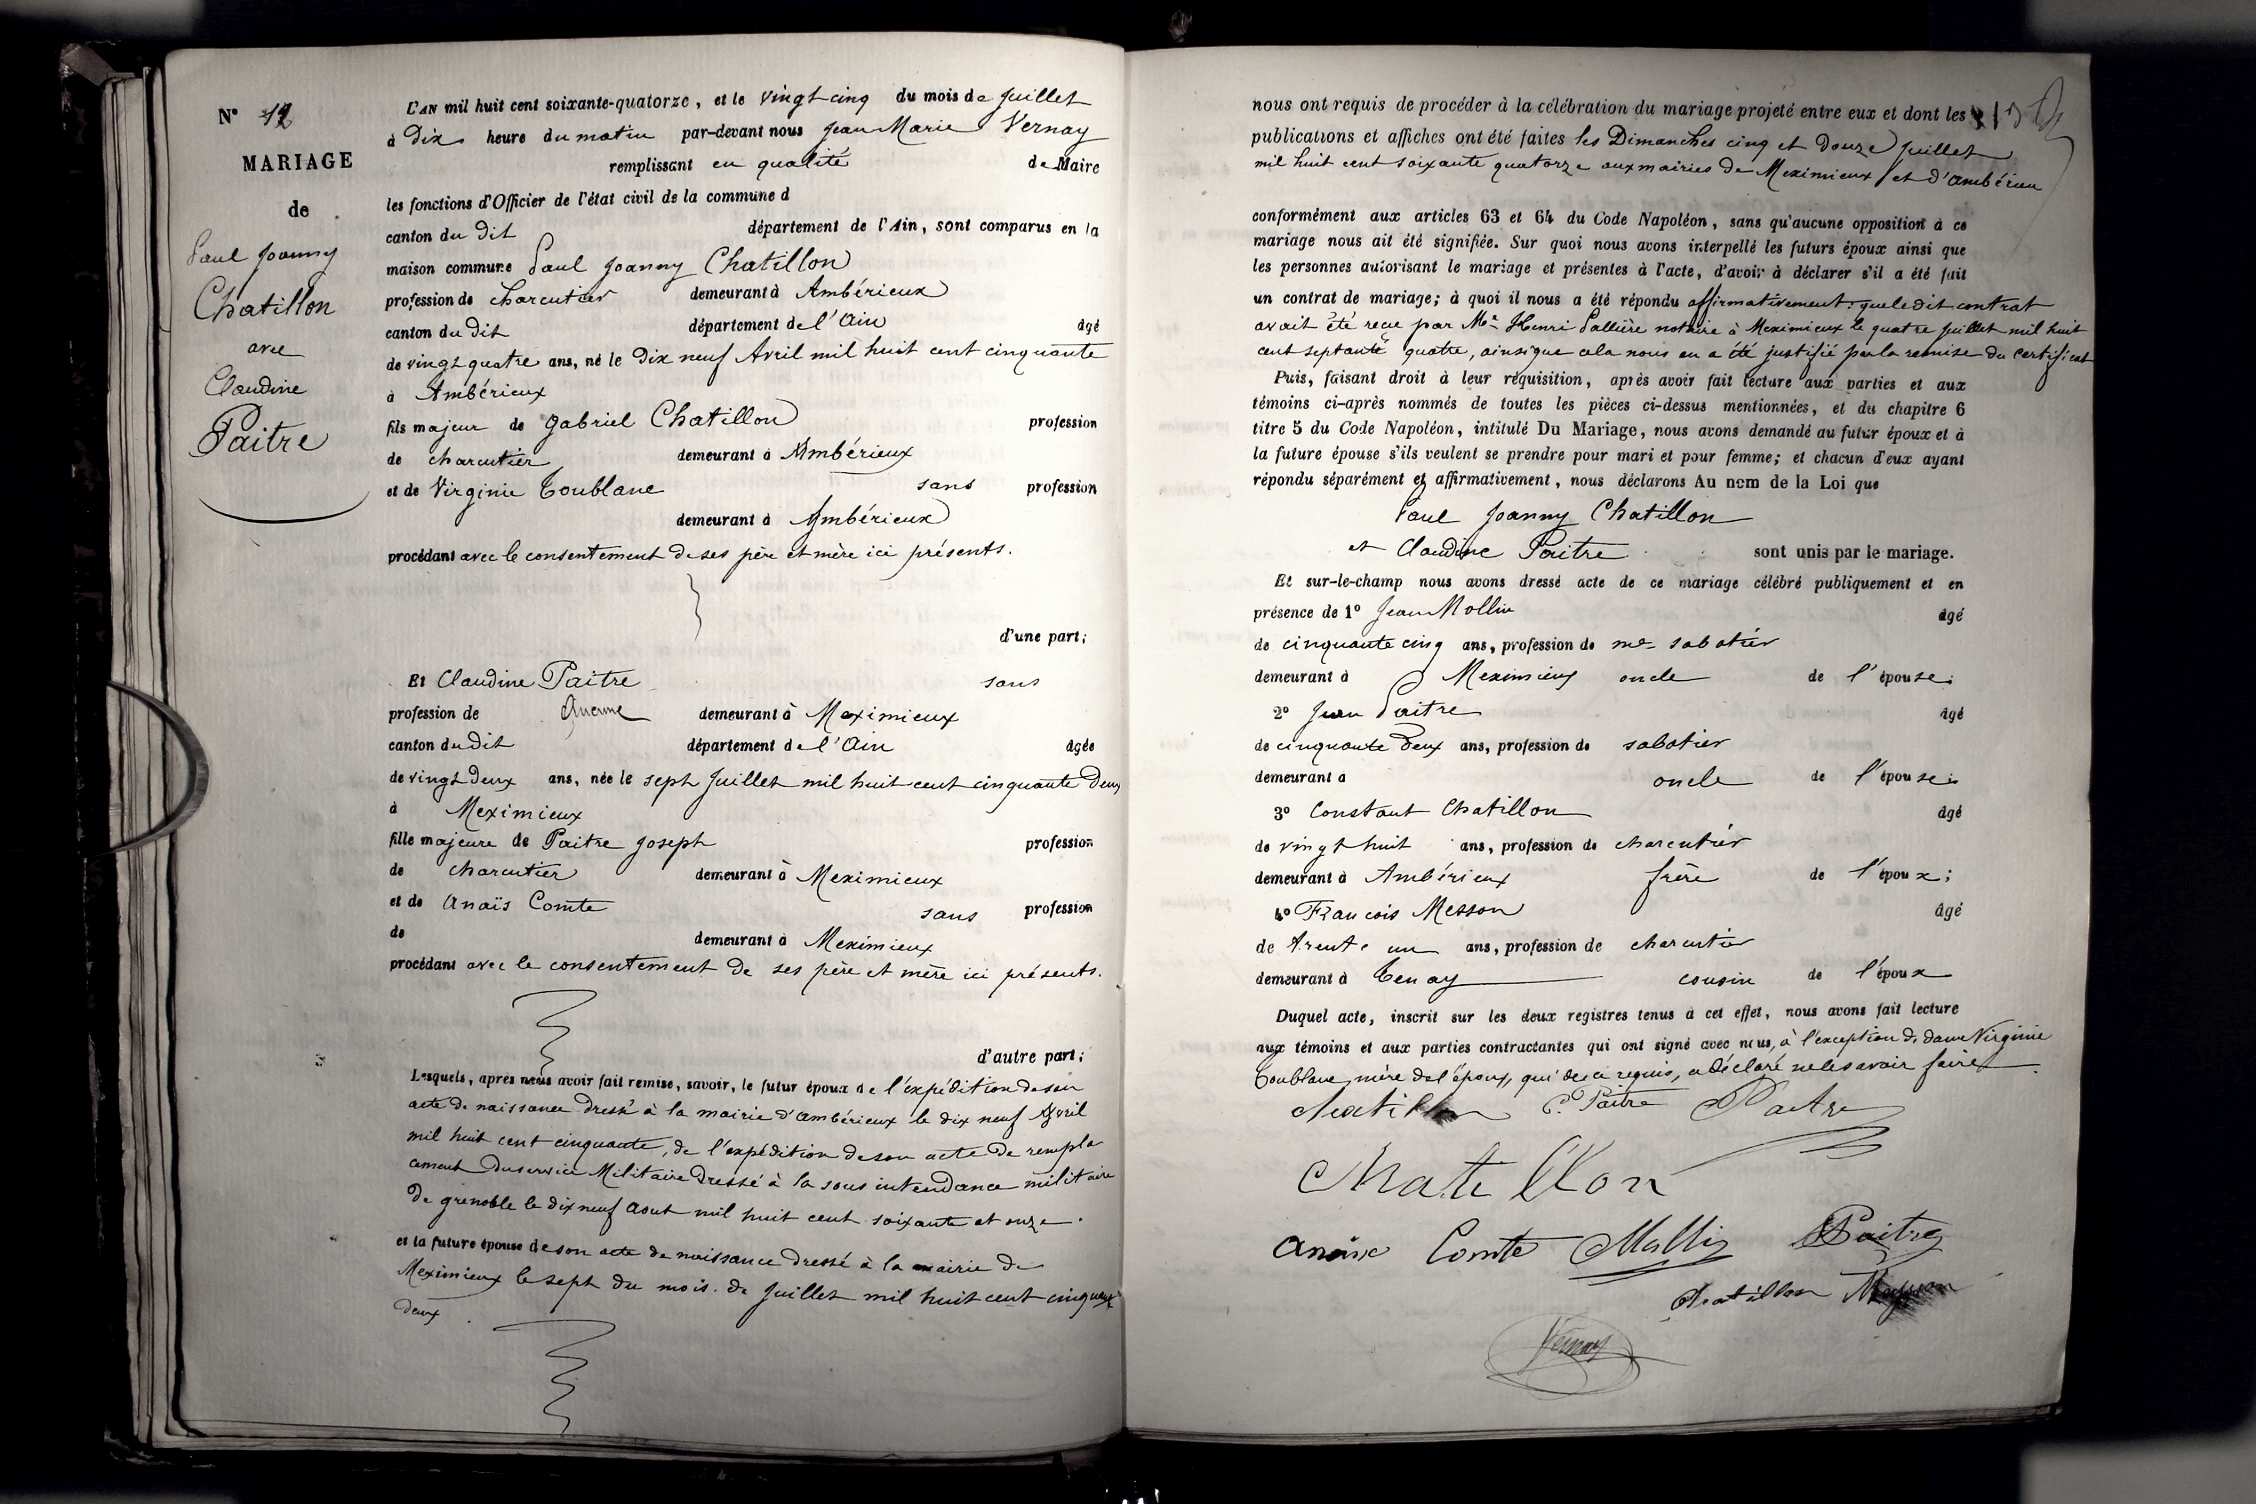 N° 12
MARIAGE
de
Paul Joanny
Chatillon
avec
Claudine
Paitre
L'AN mil huit cent soixante-quatorze, et le vingt cinq du mois de Juillet
à Dix heure du matin par-devant nous Jean Marie Vernay
remplissant en qualité de Maire
les fonctions d'Officier de l'état civil de la commune d
canton du dit département de l'Ain, sont comparus en la
maison commune Paul Joanny Chatillon
profession de charcutier demeurant à Ambérieux
canton du dit département de l'Ain âgé
de vingt quatre ans, né le Dix neuf Avril mil huit cent cinquante
à Ambérieux
fils majeur de Gabriel Chatillon profession
de charcutier demeurant à Ambérieux
et de Virginie Toublanc sans profession
demeurant à Ambérieux
procédant avec le consentement de ses père et mère ici présents.
d'une part;
Et Claudine Paitre sans
profession de Aucune demeurant à Meximieux
canton du dit département de l'Ain âgée
de vingt deux ans, née le sept Juillet mil huit cent cinquante Deux
à Meximieux
fille majeure de Paitre Joseph profession
de charcutier demeurant à Meximieux
et de Anaïs Comte sans profession
de demeurant à Meximieux
procédant avec le consentement de ses père et mère ici présents.
d'autre part;
Lesquels, après nous avoir fait remise, savoir, le futur époux de l'expédition de son
acte de naissance Dressé à la mairie d'Ambérieux le dix neuf Avril
mil huit cent cinquante, de l'expédition de son acte De rempla
cement Du service Militaire Dressé à la sous intendance militaire
De Grenoble le dix neuf Aout mil huit cent soixante et onze.
et la future épouse de son acte de naissance dressé à la mairie de
Meximieux le sept du mois de Juillet mil huit cent cinquante
deux
nous ont requis de procéder à la célébration du mariage projeté entre eux et dont les
publications et affiches ont été faites les Dimanches cinq et Douze Juillet
mil huit cent soixante quatorze aux mairies de Meximieux et d'Ambérieu
conformément aux articles 63 et 64 du Code Napoléon, sans qu'aucune opposition à ce
mariage nous ait été signifiée. Sur quoi nous avons interpellé les futurs époux ainsi que
les personnes autorisant le mariage et présentes à l'acte, d'avoir à déclarer s'il a été fait
un contrat de mariage; à quoi il nous a été répondu affirmativement: que le dit contrat
avait été reçu par Me Henri Pallière notaire à Meximieux le quatre Juillet mil huit
cent septante quatre, ainsi que cela nous en a été justifié par la remise du certificat
Puis, faisant droit à leur réquisition, après avoir fait lecture aux parties et aux
témoins ci-après nommés de toutes les pièces ci-dessus mentionnées, et du chapitre 6
titre 5 du Code Napoléon, intitulé Du Mariage, nous avons demandé au futur époux et à
la future épouse s'ils veulent se prendre pour mari et pour femme; et chacun d'eux ayant
répondu séparément et affirmativement, nous déclarons Au nom de la Loi que
Paul Joanny Chatillon
et Claudine Paitre sont unis par le mariage.
Et sur-le-champ nous avons dressé acte de ce mariage célébré publiquement et en
présence de 1° Jean Mollin âgé
de cinquante cinq ans, profession de md sabotier
demeurant à Meximieux oncle de l'épouse;
2° Jean Paitre âgé
de cinquante Deux ans, profession de sabotier
demeurant à oncle de l'épouse;
3° Constant Chatillon âgé
de vingt huit ans, profession de charcutier
demeurant à Ambérieux frère de l'époux;
4° François Messon âgé
de trente un ans, profession de charcutier
demeurant à Tenay cousin de l'époux
Duquel acte, inscrit sur les deux registres tenus à cet effet, nous avons fait lecture
aux témoins et aux parties contractantes qui ont signé avec nous, à l'exception de dame Virginie
Toublanc mère de l'époux, qui de ce requis, a déclaré ne le savoir faire
Chatillon C. Paitre Paitre
Chatillon
Anaïse Comte Mollin Paitre
Chatillon Messon
Vernay